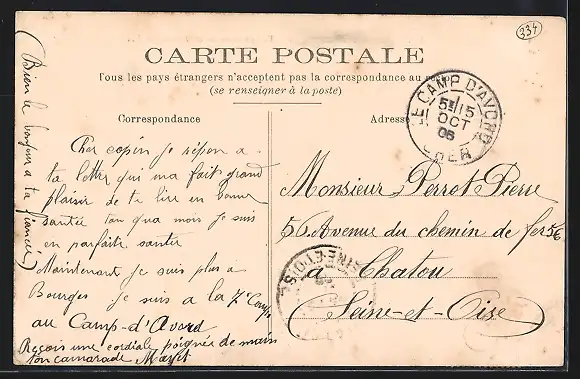 334
CARTE POSTALE
Tous les pays étrangers n'acceptent pas la correspondance au
(se renseigner à la poste)
Correspondance
Adresse
LE CAMP D'AVORD
5E 15
OCT
05
CHER
(Bien le bonjour a ta fiancée)
Cher copin je répon a
ta lettre qui ma fait grand
plaisir de te lire en bonne
santée tan qua moi je suis
en parfaite santer
Maintenant je suis plus a
Bourges je suis a la 7e Comp
au Camp-d'Avord
Reçois une cordiale poignée de main
ton camarade
Monsieur Perrot Pierre
56 Avenue du chemin de fer 56
à Chatou
Seine-et-Oise
SEINE-ET-OISE